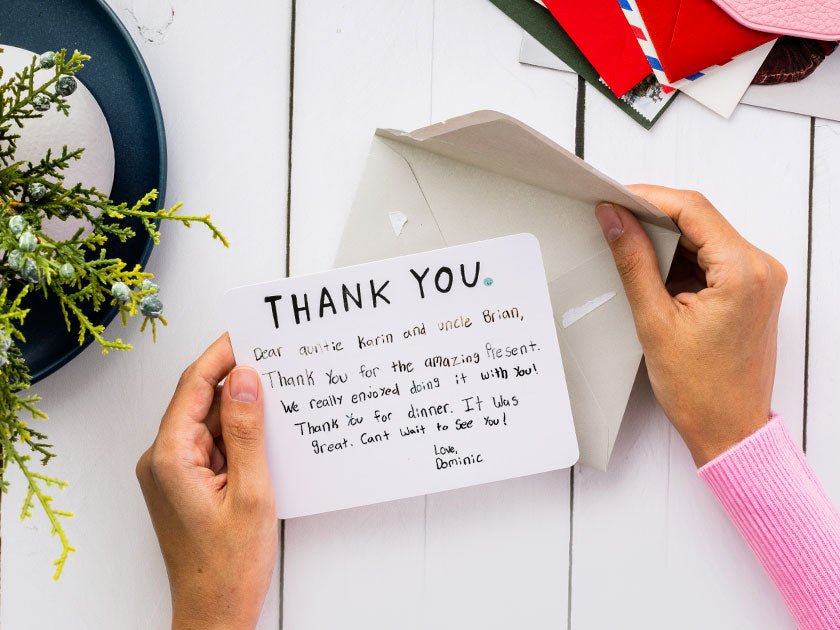 THANK YOU.
Dear auntie Karin and uncle Brian,
Thank You for the amazing Present.
We really envoyed doing it with You!
Thank You for dinner. It was
great. Cant wait to see You!
Love,
Dominic